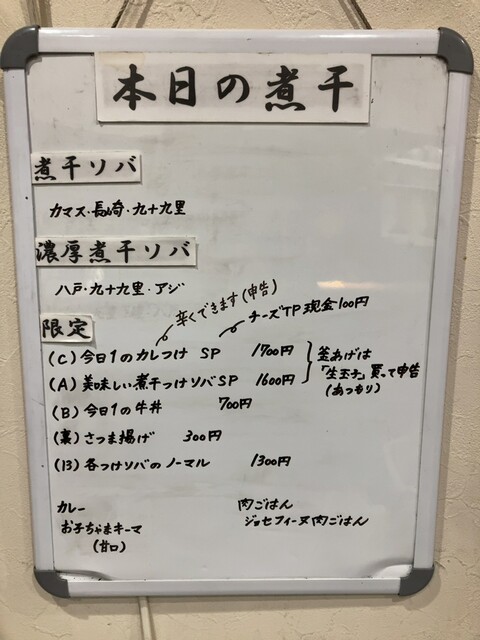 本日の煮干
煮干ソバ
カマス・長崎・九十九里
濃厚煮干ソバ
八戸・九十九里・アジ
限定
辛くできます(申告)
チーズTP 現金100円
(C) 今日1のカレつけ SP 1700円
(A) 美味しい煮干つけソバSP 1600円
釜あげは
「生玉子」買って申告
(あつもり)
(B) 今日1の牛丼 700円
(裏) さつま揚げ 300円
(13) 各つけソバのノーマル 1300円
カレー
お子ちゃまキーマ
(甘口)
肉ごはん
ジョセフィーヌ肉ごはん